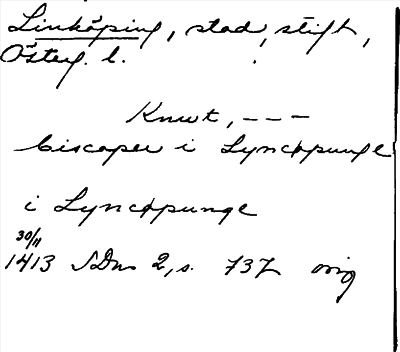 Linköping, stad, stift,
Österg. l.
Knut, ---
biscoper i Lyncøpunge
i Lyncøpunge
30/11
1413 SDns 2, s. 737 orig